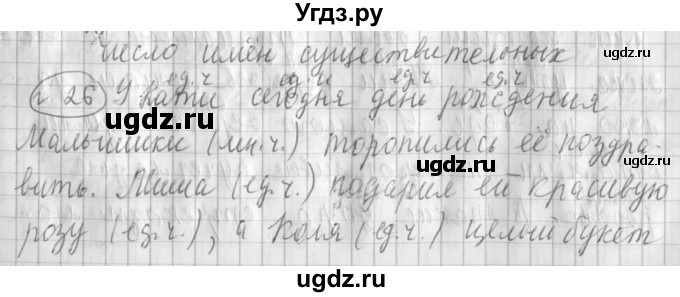 Угдз.ру
Число имён существительных
ед.ч ед.ч ед.ч ед.ч
26 У Кати сегодня день рождения
Мальчишки (мн.ч.) торопились её поздра-
вить. Миша (ед.ч.) подарил ей красивую
розу (ед.ч.), а Коля (ед.ч.) целый букет
ugdz.ru
ugdz.ru
ugdz.ru
ugdz.ru
ugdz.ru
Угдз.ру